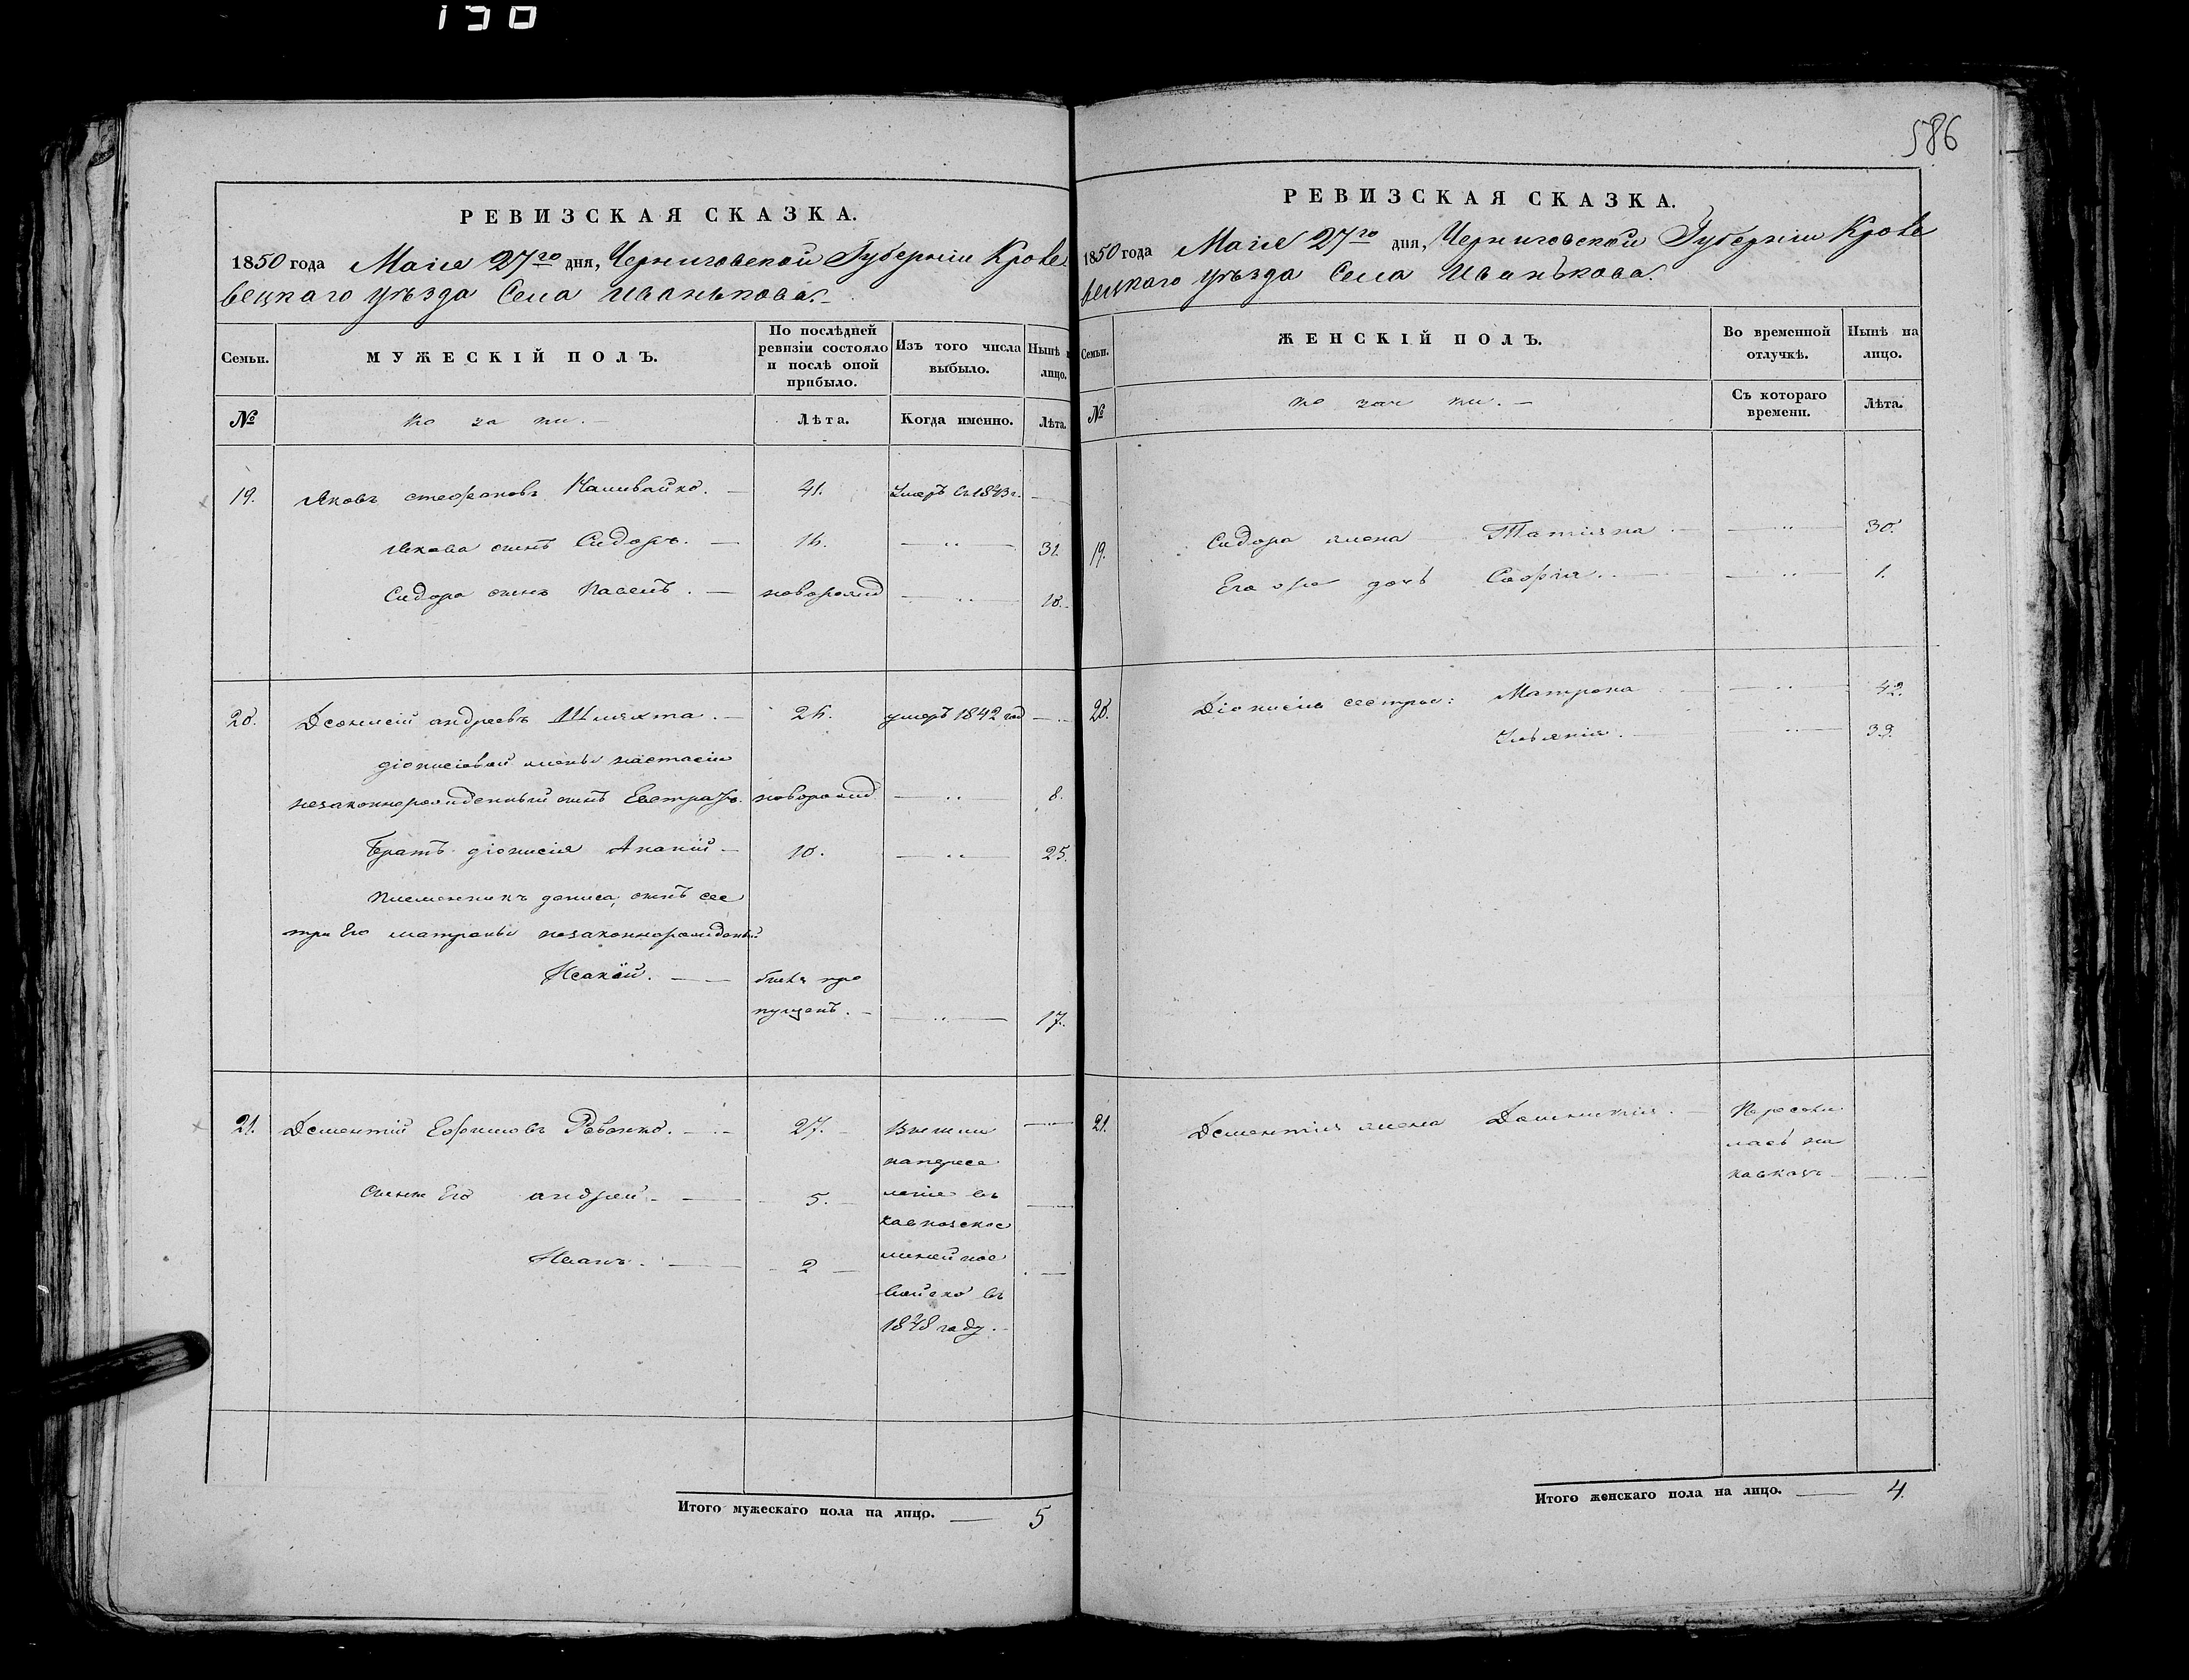 150
РЕВИЗСКАЯ СКАЗКА.
1850 года Маія 27го дня, Черниговской Губерніи Кроле
вецкаго уѣзда Села Иванькова.
Семьи.
МУЖЕСКІЙ ПОЛЪ.
По послѣдней ревизіи состояло и послѣ оной прибыло.
Изъ того числа выбыло.
Нынѣ
лицо.
№
ко за ки.
Лѣта.
Когда именно.
Лѣта.
19. Яковъ стефановъ Наливайко. 41. Умеръ въ 1843 г.
Якова сынъ Сидоръ. 16. 31.
Сидора сынъ Павелъ. новорожд 10.
20. Деонисій андреевъ Шляхта. 26. умеръ 1842 год
діонисіевой жены настасіи
незаконнорожденный сынъ Евстрафъ. новорожд 8.
Братъ діонисія Ананій 10. 25.
племенникъ дениса, сынъ сес
тры Его матроны незаконнорожденый
Исакій. былъ про
пущенъ. 17.
21. Дементій Ефимовъ Ревенко. 27. Вышли
напересе
Сыны Его андрей 5. леніе въ
кавказское
Иванъ. 2 линейное
войско въ
1848 году.
Итого мужескаго пола на лицо. 5
586
РЕВИЗСКАЯ СКАЗКА.
1850 года Маія 27го дня, Черниговской Губерніи Кроле
вецкаго уѣзда Села Иванькова.
Семьи.
ЖЕНСКІЙ ПОЛЪ.
Во временной отлучкѣ.
Нынѣ на лицо.
№
ко зач ки.
Съ котораго времени.
Лѣта.
19. Сидора жена Татіяна 30.
Его же дочь Софія. 1.
20. Діонисія сестры: Матрона 42.
Ульянія. 39.
21. Дементія жена Домникія. Пересели
лась на
кавказъ
Итого женскаго пола на лицо. 4.